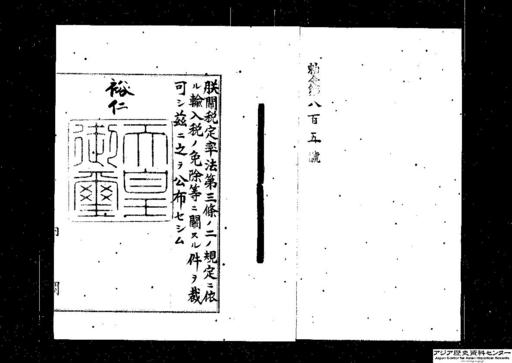 勅令第八百五號
朕關税定率法第三條ノ二ノ規定ニ依
ル輸入税ノ免除等ニ關スル件ヲ裁
可シ茲ニ之ヲ公布セシム
裕仁
天皇
御璽
内閣
アジア歴史資料センター
Japan Center for Asian Historical Records